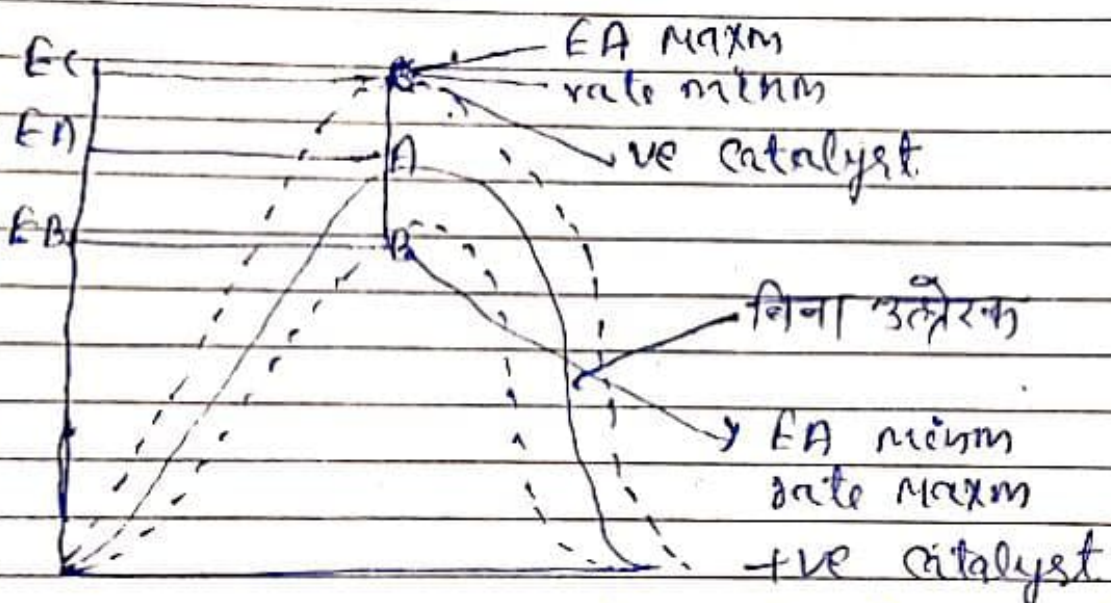 EC
EA
EB
C
A
B
EA maxm
rate minm
ve catalyst
बिना उत्प्रेरक
EA minm
rate maxm
+ve catalyst